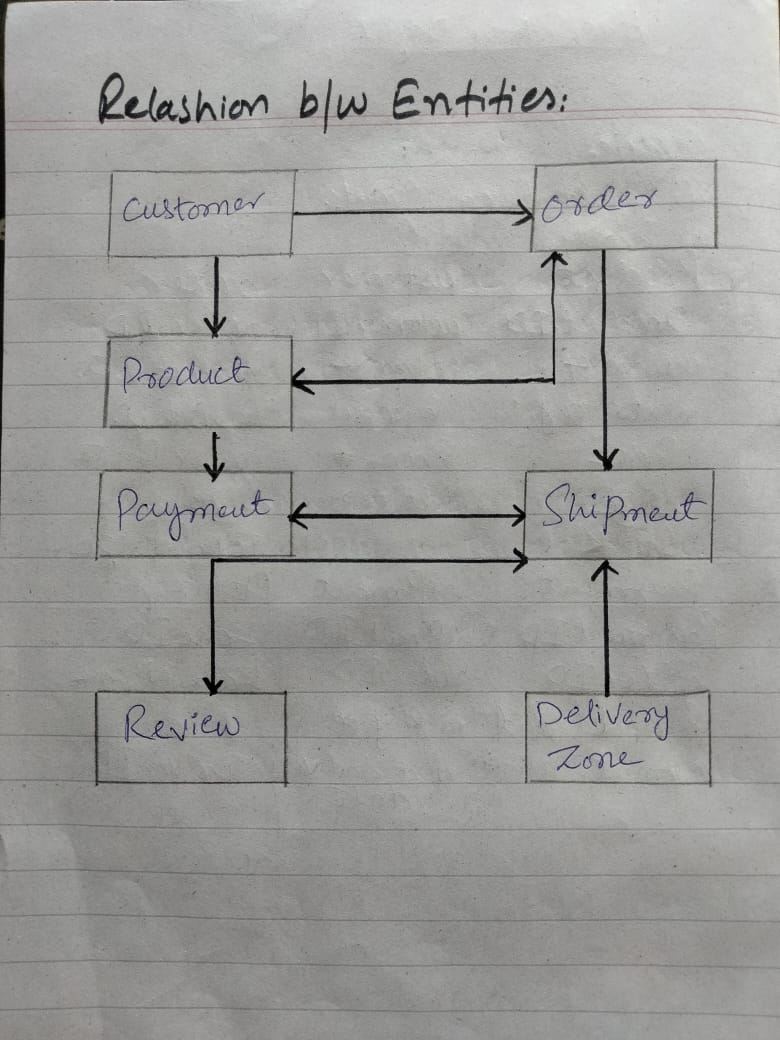 Relashion b/w Entities:
Customer
Order
Product
Payment
Shipment
Review
Delivery
Zone